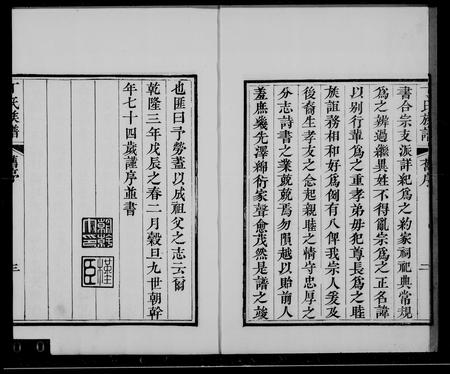 丁氏族譜
舊序
二
書合宗支派詳紀爲之約家祠祀典常規
爲之辨過繼異姓不得亂宗爲之正名諱
以別行輩爲之重孝弟毋犯尊長爲之睦
族誼務相和好爲例有八俾我宗人爰及
後裔生孝友之念起親睦之情守忠厚之
分志詩書之業兢兢焉勿隕越以貽前人
羞庶幾先澤綿衍家聲愈茂然是譜之竣
也匪曰予勞蓋以成祖父之志云爾
乾隆三年戊辰之春二月穀旦九世朝幹
年七十四歲謹序並書
丁氏族譜
舊序
三